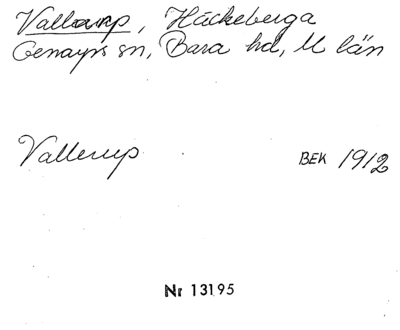 Vallarp, Häckeberga
Genarps sn, Bara hd, M län
Vallerup BEK 1912
Nr 13195